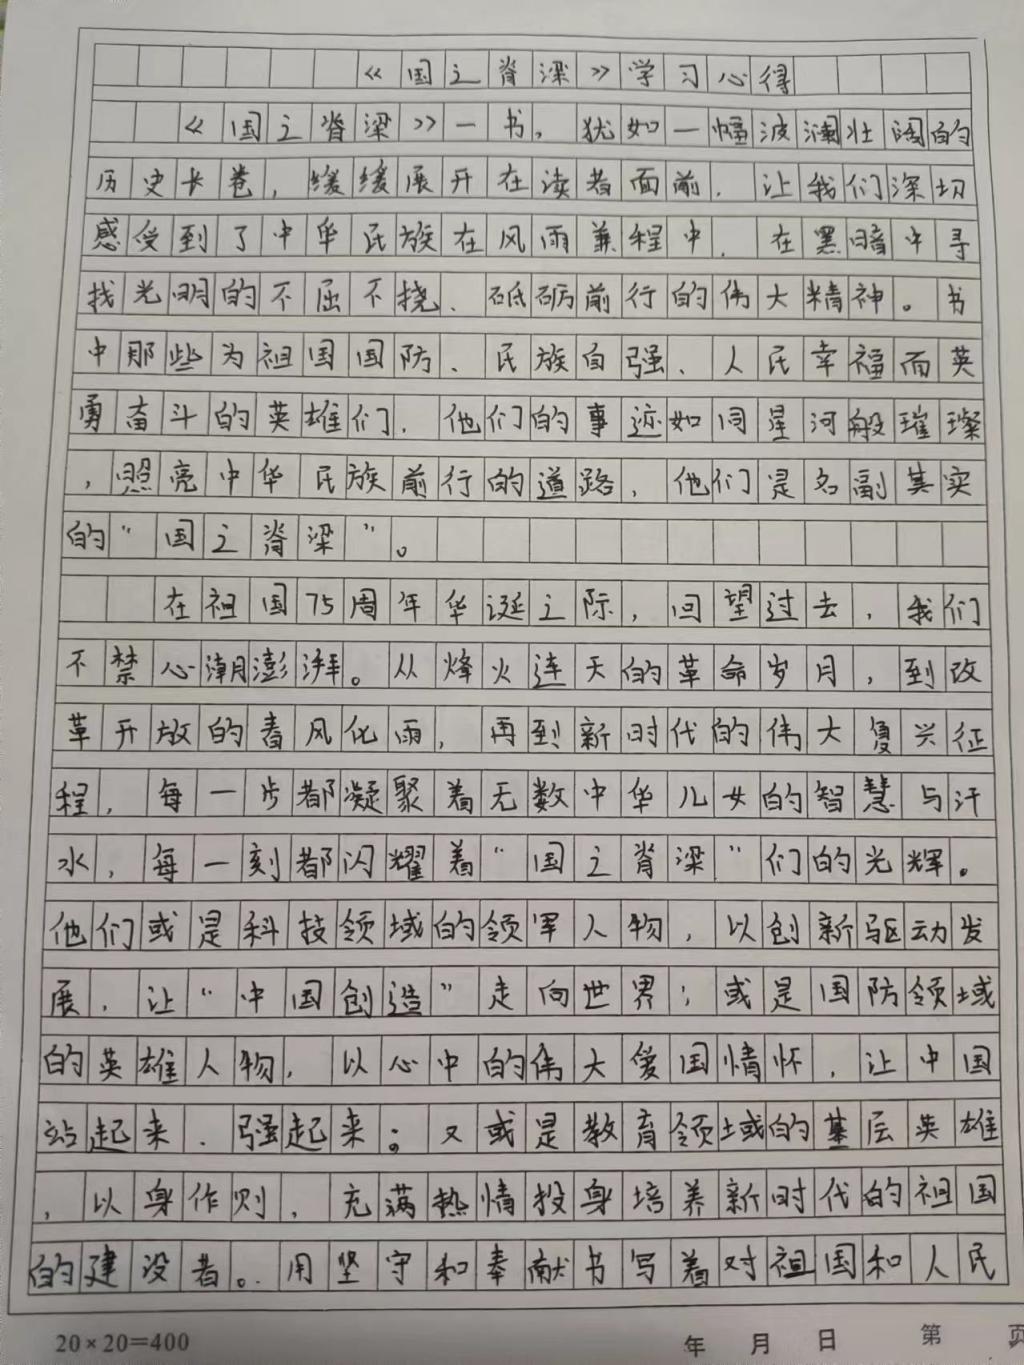 《国之脊梁》学习心得
《国之脊梁》一书，犹如一幅波澜壮阔的
历史长卷，缓缓展开在读者面前，让我们深切
感受到了中华民族在风雨兼程中，在黑暗中寻
找光明的不屈不挠、砥砺前行的伟大精神。书
中那些为祖国国防、民族自强、人民幸福而英
勇奋斗的英雄们，他们的事迹如同星河般璀璨
，照亮中华民族前行的道路，他们是名副其实
的“国之脊梁”。
在祖国75周年华诞之际，回望过去，我们
不禁心潮澎湃。从烽火连天的革命岁月，到改
革开放的春风化雨，再到新时代的伟大复兴征
程，每一步都凝聚着无数中华儿女的智慧与汗
水，每一刻都闪耀着“国之脊梁”们的光辉。
他们或是科技领域的领军人物，以创新驱动发
展，让“中国创造”走向世界；或是国防领域
的英雄人物，以心中的伟大爱国情怀，让中国
站起来、强起来；又或是教育领域的基层英雄
，以身作则，充满热情投身培养新时代的祖国
的建设者。用坚守和奉献书写着对祖国和人民
20×20=400
年 月 日 第 页